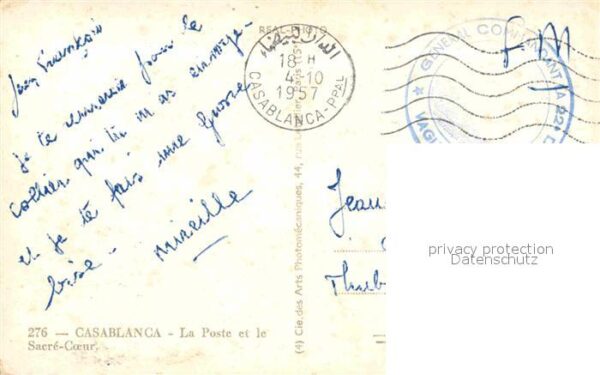 Jean François
je te remercie pour le
collier que tu m'as envoyé
et je te fais une grosse
bise -
Mireille
276 — CASABLANCA - La Poste et le
Sacré-Cœur.
REAL-PHOTO
(4) Cie des Arts Photomécaniques, 44, rue
الدار البيضاء
18 H
4-10
1957
CASABLANCA-PPAL
F M
★ GENERAL COMMANDANT LA 22
Jean
Thub
privacy protection
Datenschutz